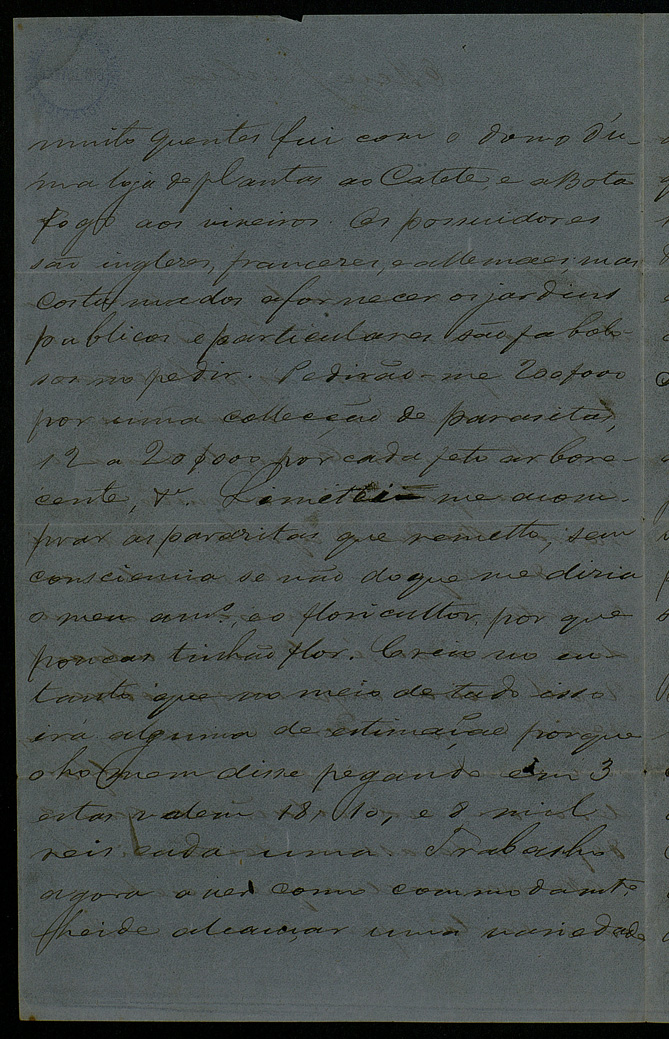 muito quentes fui com o dono d'u-
ma loja de plantas ao Catete, e a Bota
fogo aos viveiros. Os possuidores
são inglezes, francezes, e allemães, mas
costumados a fornecer os jardins
publicos e particulares são fabolo-
sos no pedir. Pedirão-me 200$000
por uma collecção de parasitas,
12 a 20$000 por cada feto arbore-
cente, &ª. Limitei-me a com-
prar as parasitas que remetto, sem
consciencia se não do que me dizia
o meu amº, e o floricultor, por que
poucas tinhão flor. Creio no en-
tanto que no meio de tudo isso
irá alguma de estimação porque
o homem disse pegando em 3
estas valem 18, 10, e 8 mil
reis cada uma. Trabalho
agora a ver como commodamte
heide alcançar uma variedade